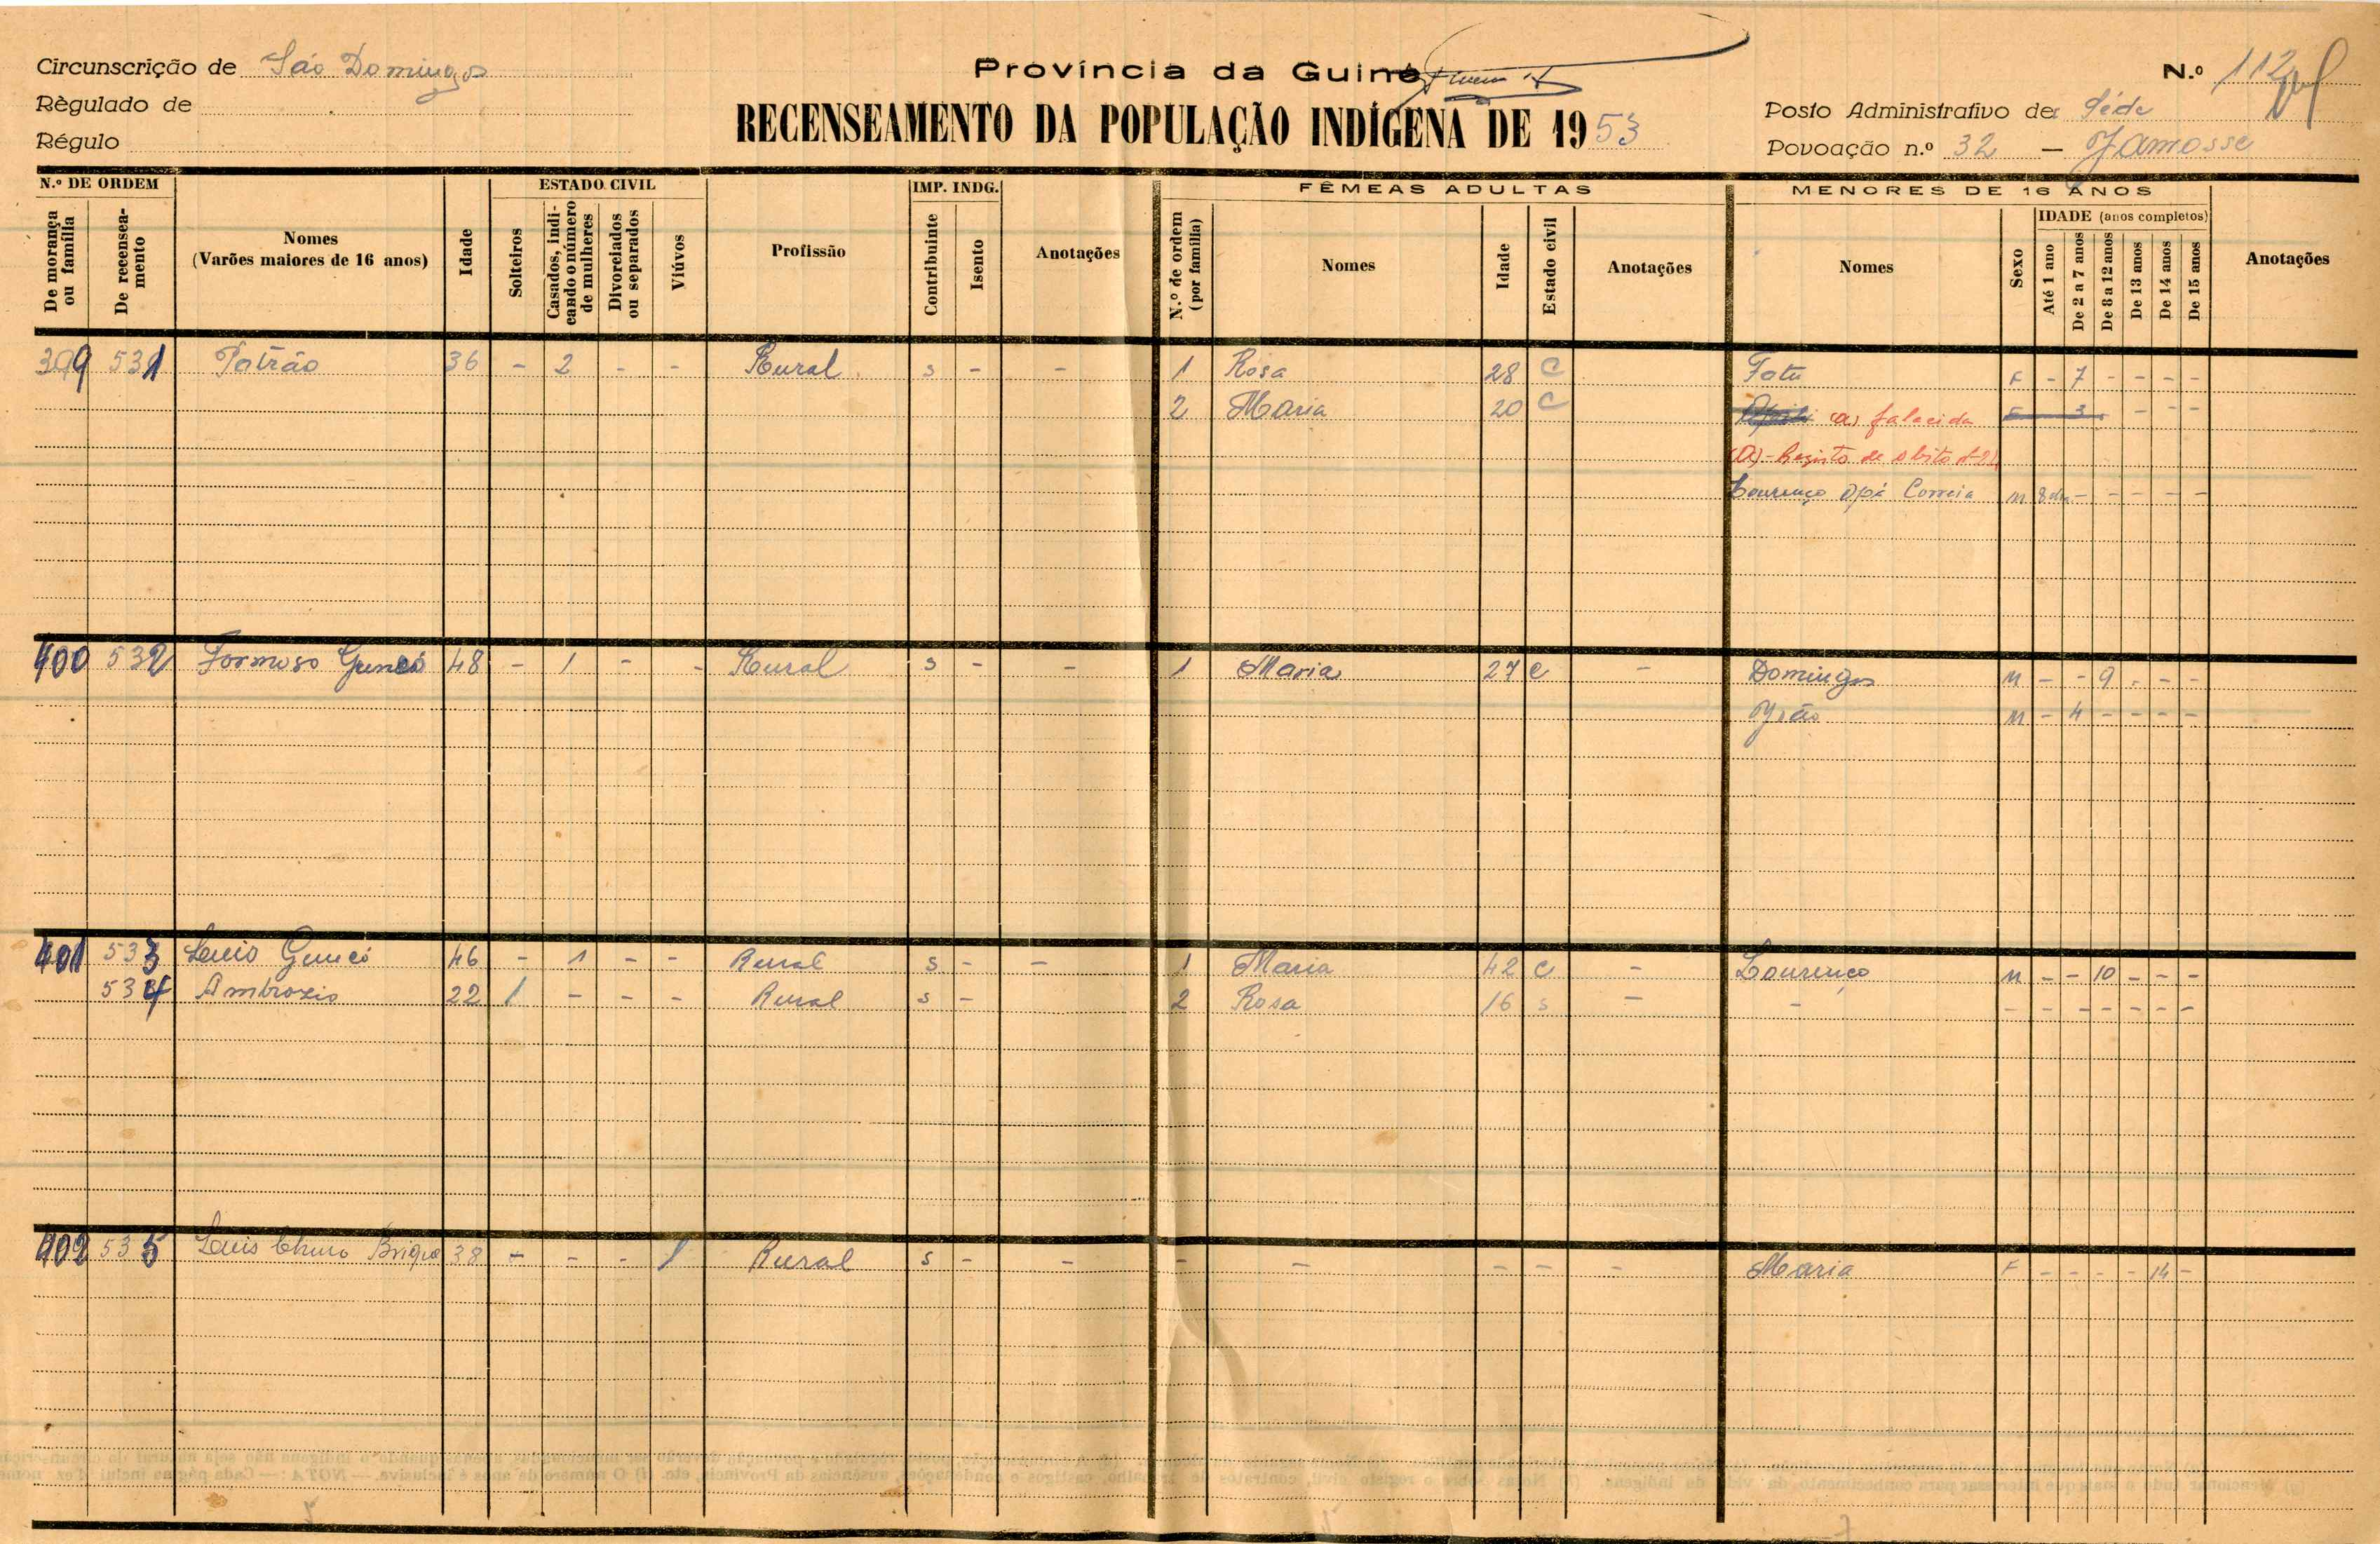 Circunscrição de São Domingos
Règulado de
Régulo
Província da Guiné
RECENSEAMENTO DA POPULAÇÃO INDÍGENA DE 1953
N.º 112
Posto Administrativo de Séde
Povoação n.º 32 — Jamosse
N.º DE ORDEM
De morança ou família
De recenseamento
Nomes
(Varões maiores de 16 anos)
Idade
ESTADO CIVIL
Solteiros
Casados, indicando o número de mulheres
Divorciados ou separados
Viúvos
Profissão
IMP. INDG.
Contribuinte
Isento
Anotações
FÊMEAS ADULTAS
N.º de ordem (por família)
Nomes
Idade
Estado civil
Anotações
MENORES DE 16 ANOS
Nomes
Sexo
IDADE (anos completos)
Até 1 ano
De 2 a 7 anos
De 8 a 12 anos
De 13 anos
De 14 anos
De 15 anos
Anotações
399 531 Patrão 36 - 2 - - Rural s - - 1 Rosa 28 C Fatu F - 7 - - - -
2 Maria 20 C (a) falecida F 3 - - -
(a) - Registo de obito nº 21
Lourenço Opá Correia M 8 dias - - - - -
400 532 Formoso 48 - 1 - - Rural s - - 1 Maria 27 C - Domingos M - - 9 - - -
João M - 4 - - - -
401 533 Luis 46 - 1 - - Rural s - - 1 Maria 42 C - Lourenço M - - 10 - - -
534 Ambrozio 22 1 - - - Rural s - 2 Rosa 16 s - - - - - - - - -
402 535 Luis 38 - - - 1 Rural s - - - - - - - Maria F - - - - 14 -